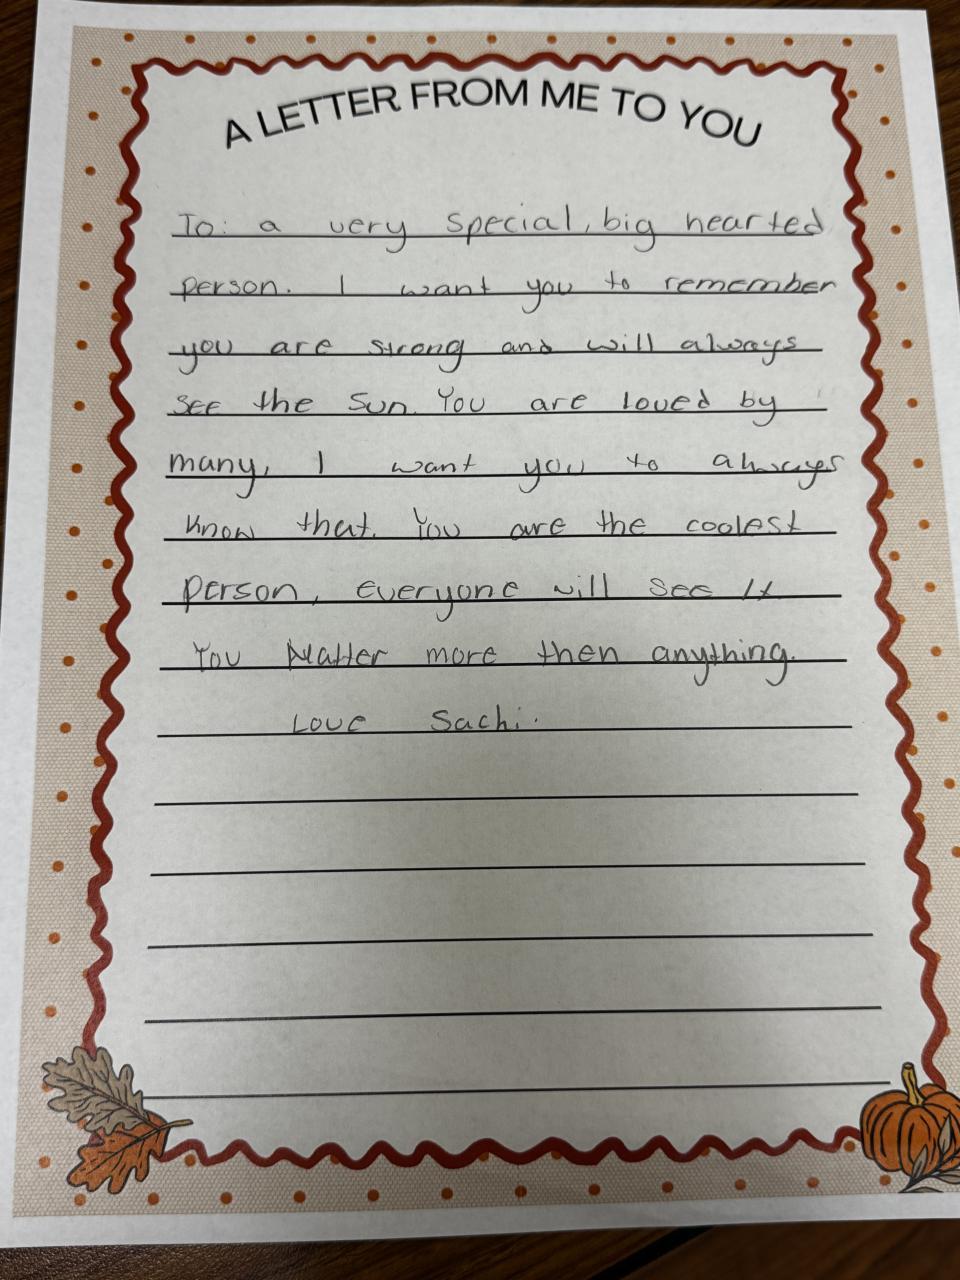 A LETTER FROM ME TO YOU
To: a very special, big hearted
person. I want you to remember
you are strong and will always
see the sun. You are loved by
many, I want you to always
know that. You are the coolest
person, everyone will see it
You Matter more then anything.
Love Sachi.